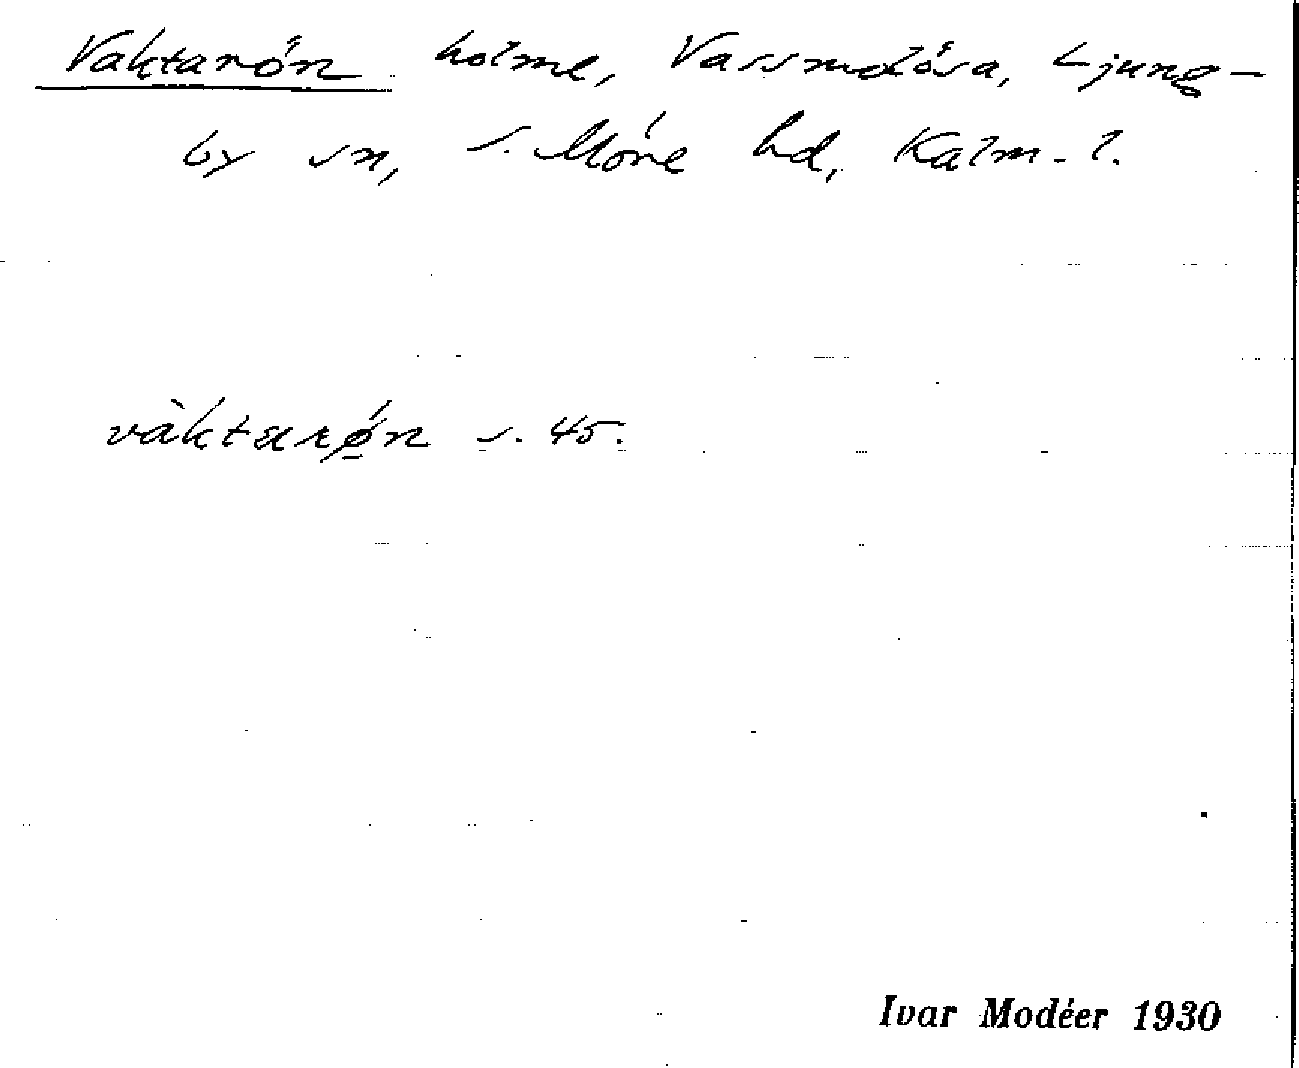 Vaktarön holme, Vassmolösa, Ljung-
by sn, S. Möre hd, Kalm. l.
vàktarǿ̱n s. 45.
Ivar Modéer 1930